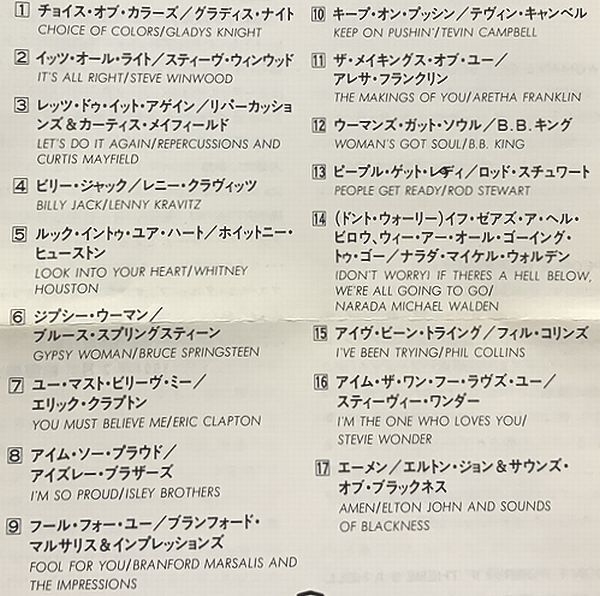 1 チョイス・オブ・カラーズ／グラディス・ナイト
CHOICE OF COLORS/GLADYS KNIGHT
2 イッツ・オール・ライト／スティーヴ・ウィンウッド
IT'S ALL RIGHT/STEVE WINWOOD
3 レッツ・ドゥ・イット・アゲイン／リパーカッショ
ンズ＆カーティス・メイフィールド
LET'S DO IT AGAIN/REPERCUSSIONS AND
CURTIS MAYFIELD
4 ビリー・ジャック／レニー・クラヴィッツ
BILLY JACK/LENNY KRAVITZ
5 ルック・イントゥ・ユア・ハート／ホイットニー・
ヒューストン
LOOK INTO YOUR HEART/WHITNEY
HOUSTON
6 ジプシー・ウーマン／
ブルース・スプリングスティーン
GYPSY WOMAN/BRUCE SPRINGSTEEN
7 ユー・マスト・ビリーヴ・ミー／
エリック・クラプトン
YOU MUST BELIEVE ME/ERIC CLAPTON
8 アイム・ソー・プラウド／
アイズレー・ブラザーズ
I'M SO PROUD/ISLEY BROTHERS
9 フール・フォー・ユー／ブランフォード・
マルサリス＆インプレッションズ
FOOL FOR YOU/BRANFORD MARSALIS AND
THE IMPRESSIONS
10 キープ・オン・プッシン／テヴィン・キャンベル
KEEP ON PUSHIN'/TEVIN CAMPBELL
11 ザ・メイキングス・オブ・ユー／
アレサ・フランクリン
THE MAKINGS OF YOU/ARETHA FRANKLIN
12 ウーマンズ・ガット・ソウル／B.B.キング
WOMAN'S GOT SOUL/B.B. KING
13 ピープル・ゲット・レディ／ロッド・スチュワート
PEOPLE GET READY/ROD STEWART
14 (ドント・ウォーリー)イフ・ゼアズ・ア・ヘル・
ビロウ、ウィー・アー・オール・ゴーイング・
トゥ・ゴー／ナラダ・マイケル・ウォルデン
(DON'T WORRY) IF THERES A HELL BELOW,
WE'RE ALL GOING TO GO/
NARADA MICHAEL WALDEN
15 アイヴ・ビーン・トライング／フィル・コリンズ
I'VE BEEN TRYING/PHIL COLLINS
16 アイム・ザ・ワン・フー・ラヴズ・ユー／
スティーヴィー・ワンダー
I'M THE ONE WHO LOVES YOU/
STEVIE WONDER
17 エーメン／エルトン・ジョン＆サウンズ・
オブ・ブラックネス
AMEN/ELTON JOHN AND SOUNDS
OF BLACKNESS